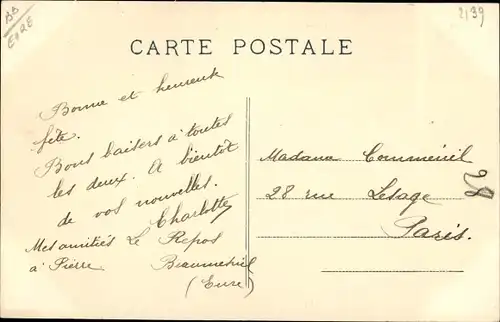 BB
EURE
2139
CARTE POSTALE
Bonne et heureuse
fête.
Bons baisers à toutes
les deux. A bientôt
de vos nouvelles.
Charlotte
Mes amitiés Le Repos
à Pierre Beaumesnil
(Eure)
Madame Commenil
28 rue Lesage
Paris.
28